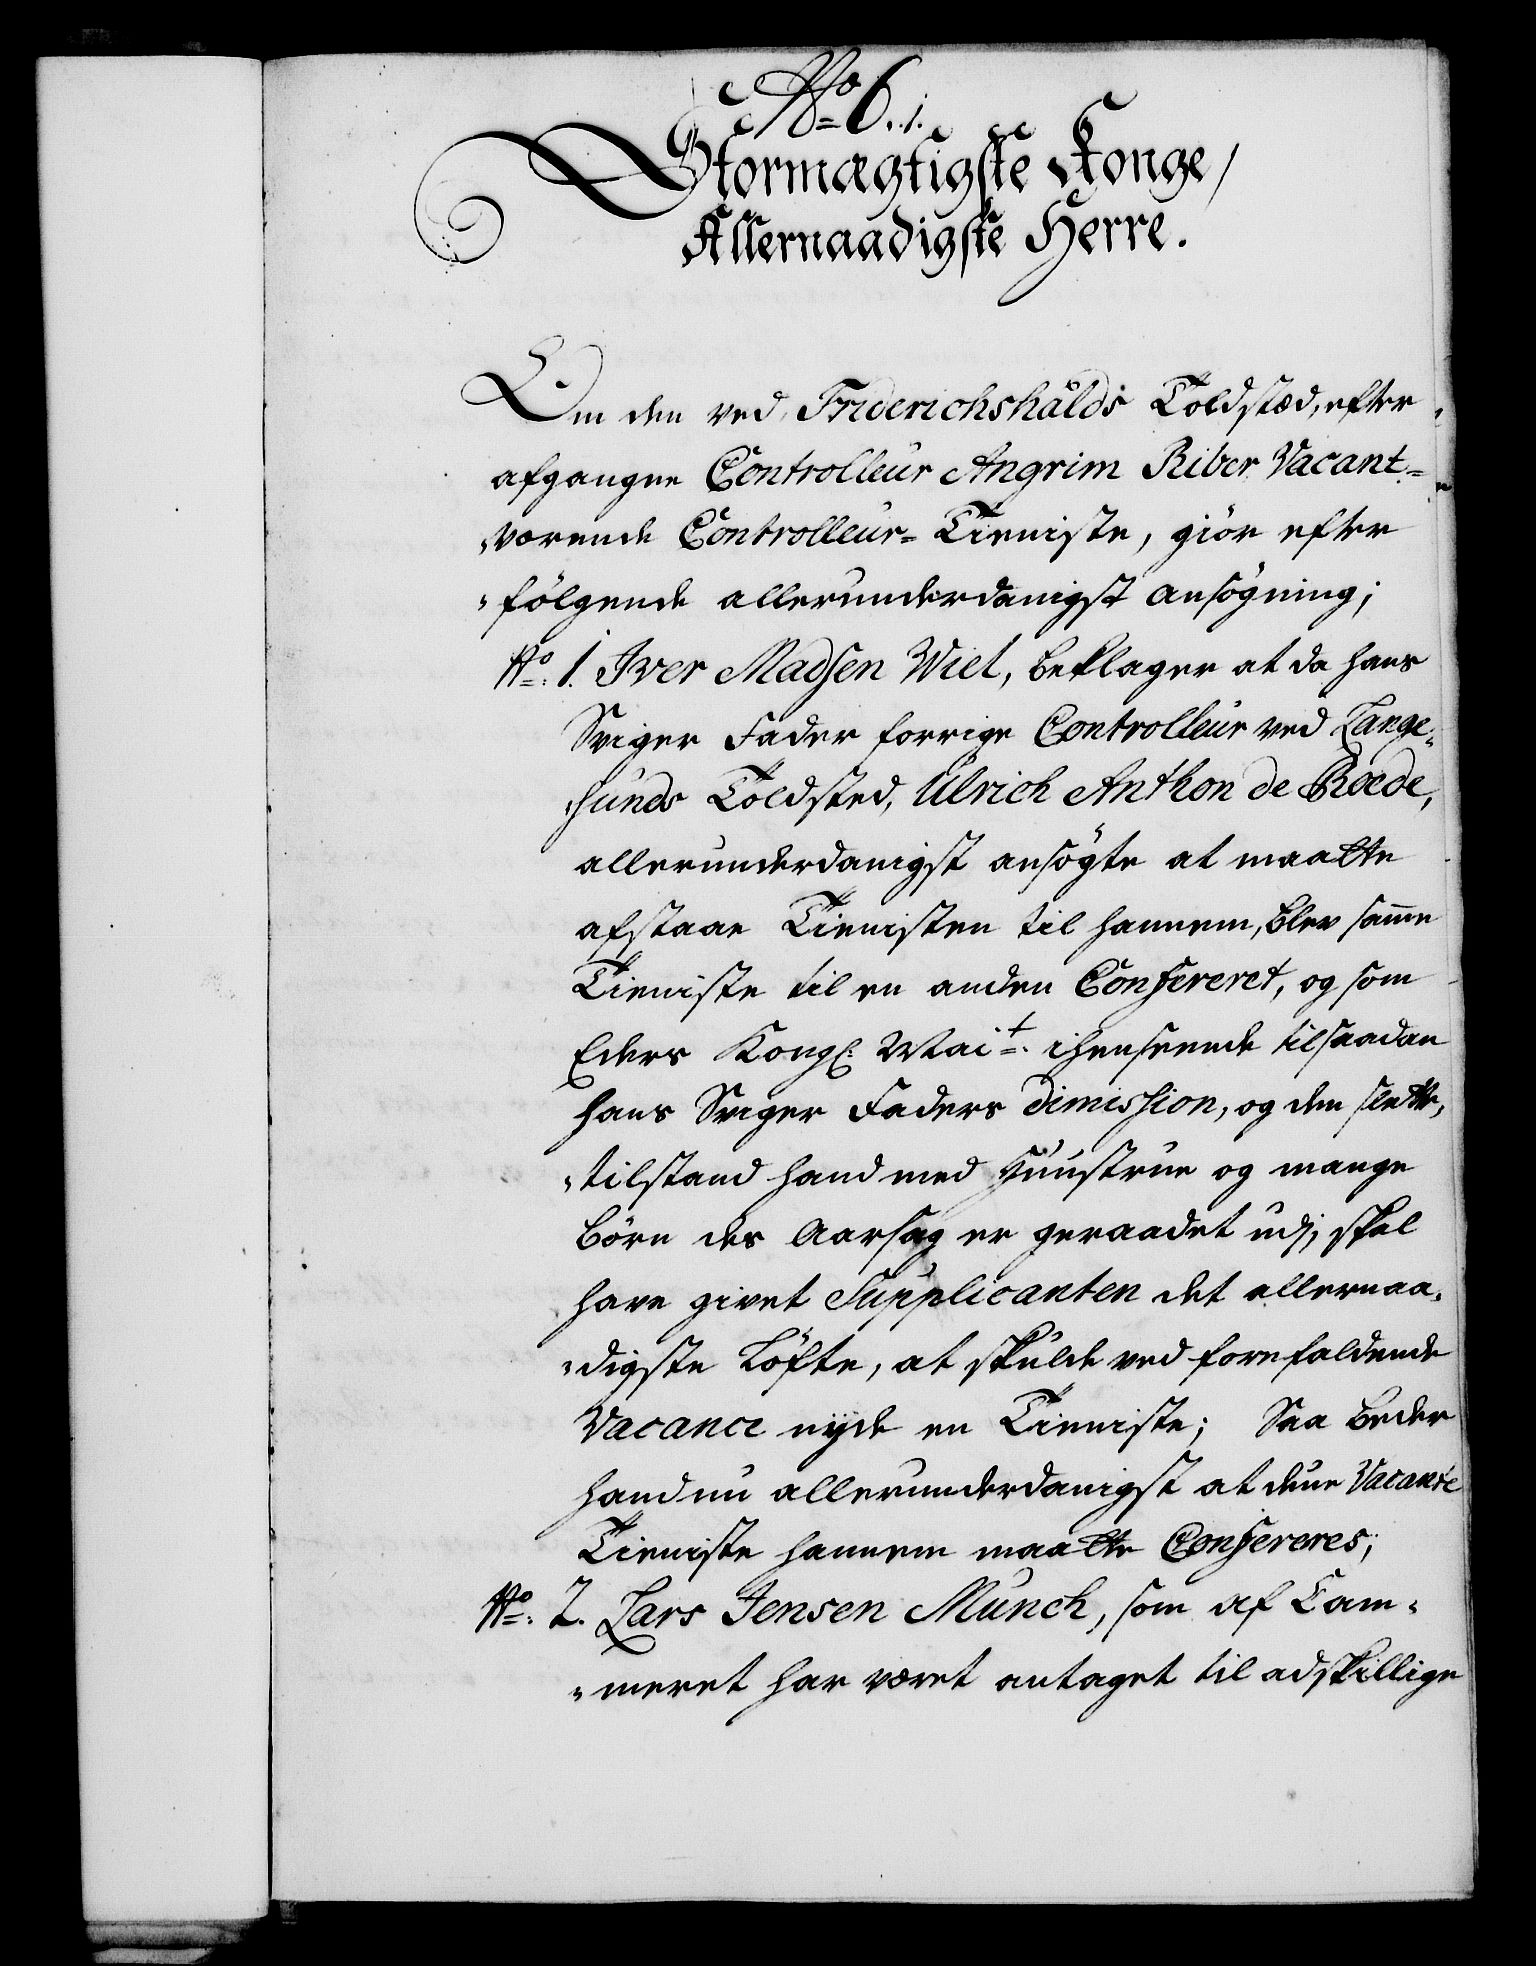 No 6. 1.
Stormægtigste Konge,
Allernaadigste Herre.
Om den ved Friderichshalds Toldstæd, efter
afgangne Controlleur Angrim Riber Vacant-
værende Controlleur-Tieniste, giör efter
fölgende allerunderdanigst Ansögning;
No: 1. Iver Madsen Wiel, beklager at da hans
Sviger Fader forrige Controlleur ved Lange-
sunds Toldsted, Ulrich Anthon de Roede,
allerunderdanigst ansögte at maatte
afstaae Tienisten til hannem, blev samme
Tieniste til en anden Confereret, og som
Eders Kongl: Mait: i henseende til saadan
hans Sviger Faders dimission, og den slette
tilstand hand med Huustrue og mange
Börn des Aarsag er geraadet udj, skal
have givet Supplicanten det allernaa-
digste Löfte, at skulde ved forefaldende
Vacance nyde en Tieniste; Saa beder
hand nu allerunderdanigst at denne Vacante
Tieniste hannem maatte Confereres;
No: 2. Lars Jensen Munch, som af Cam-
meret har været antaget til adskillige